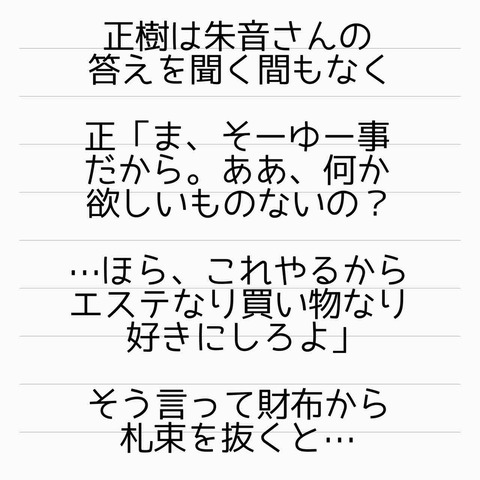 正樹は朱音さんの
答えを聞く間もなく
正「ま、そーゆー事
だから。ああ、何か
欲しいものないの？
…ほら、これやるから
エステなり買い物なり
好きにしろよ」
そう言って財布から
札束を抜くと…